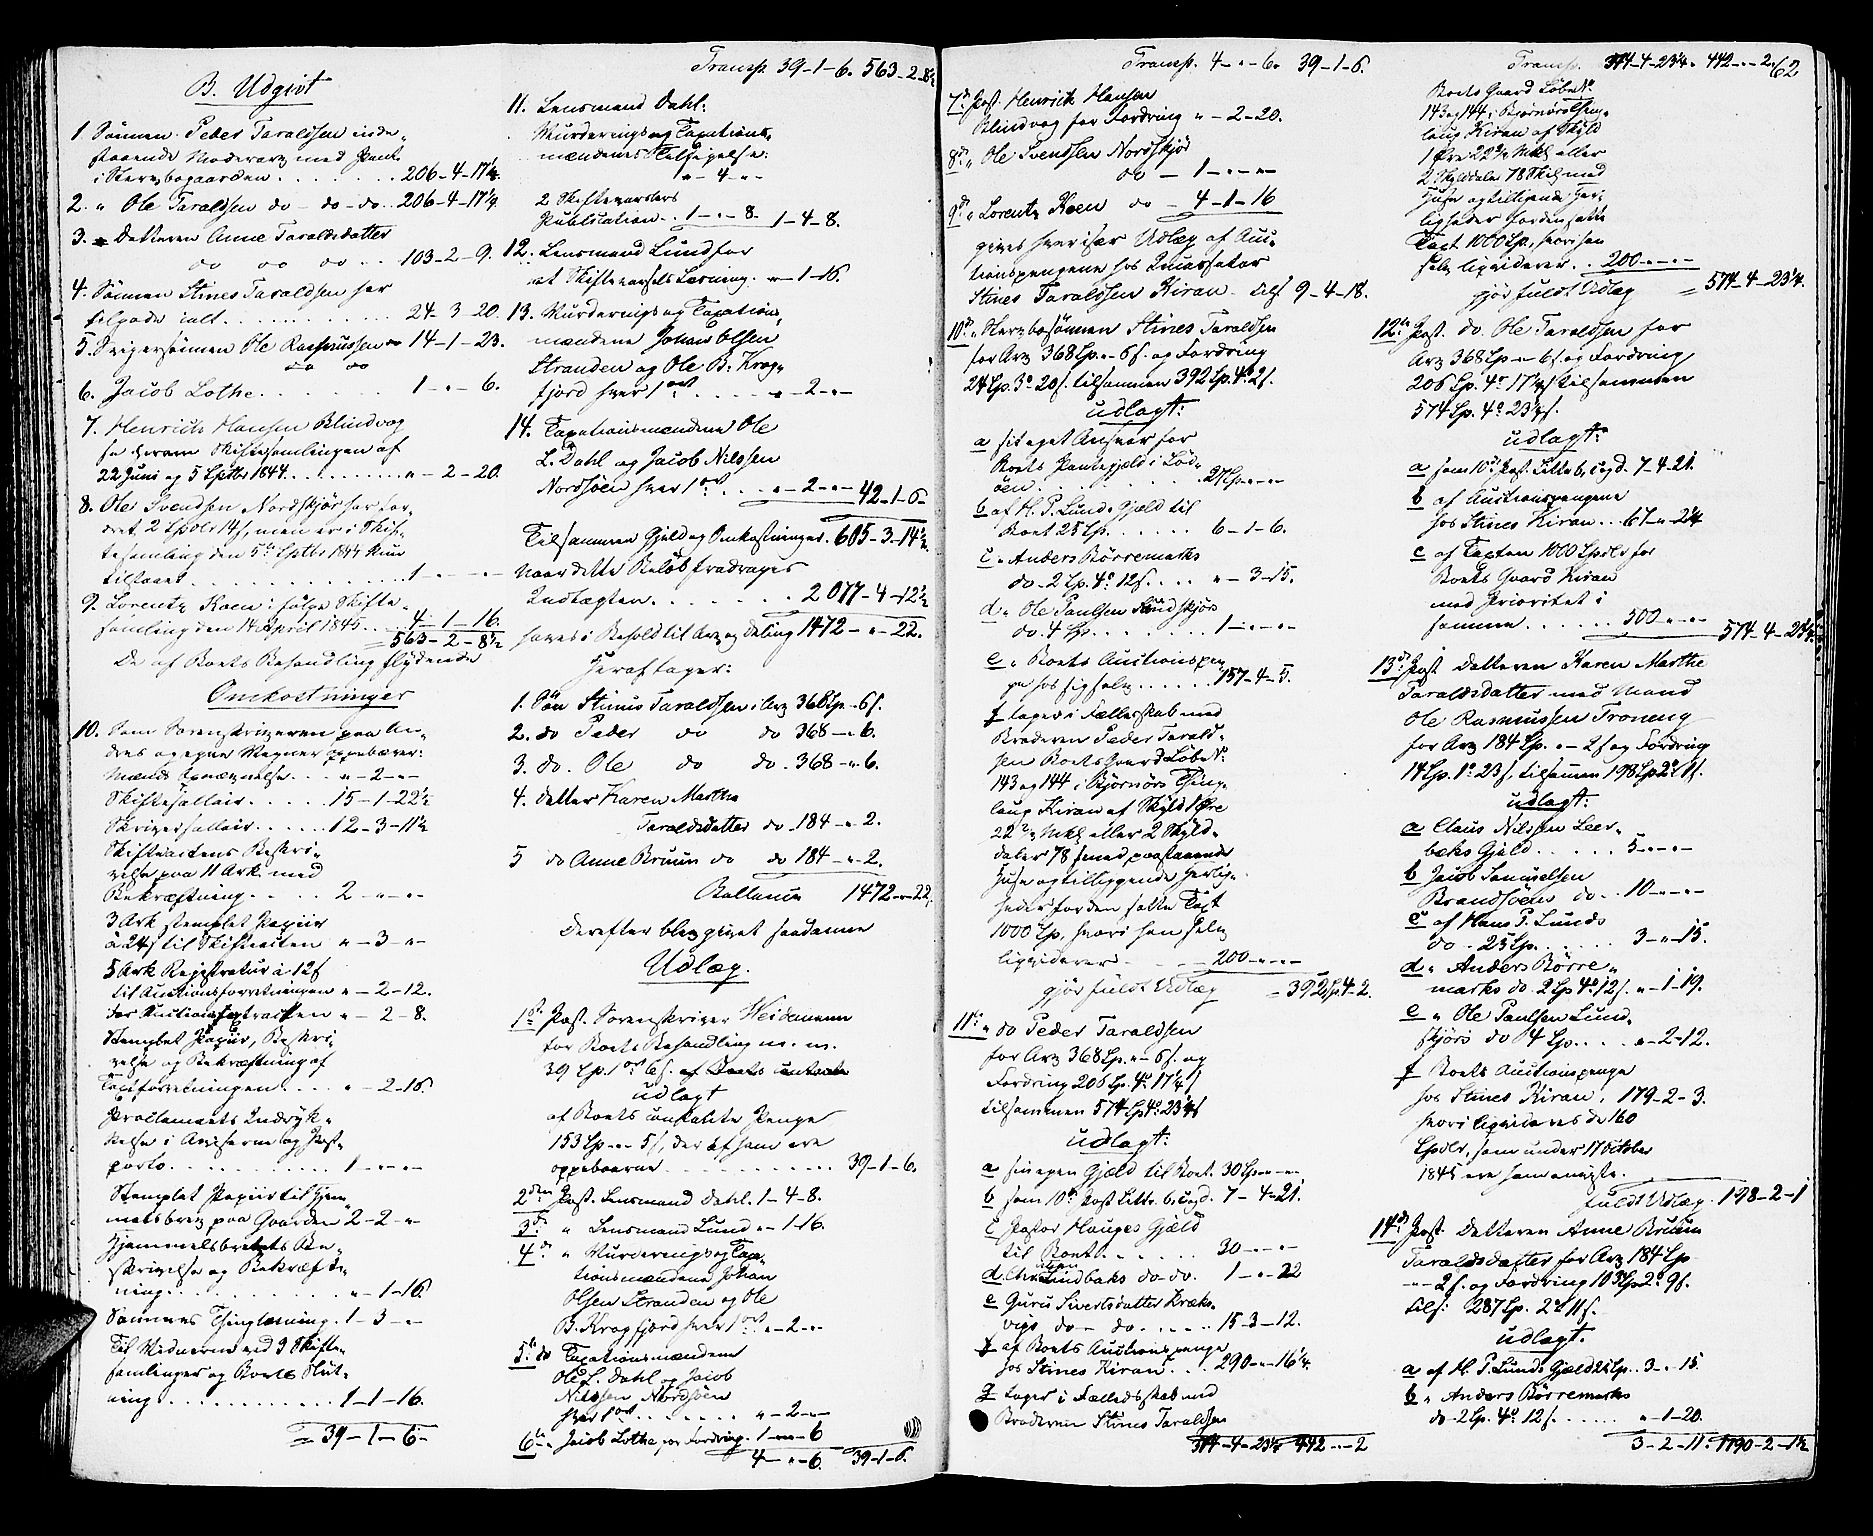 B. Udgivt
1. Sønnen Peder Taraldsen inde-
staaende Moderarv med Pant
i Stervbogaarden . . . . . . . 206-4-17¼.
2. " Ole Taraldsen do - do - do . . 206-4-17¼
3. " Datteren Anne Taraldsdatter
do do do . . 103-2-9.
4. Sønnen Stines Taraldsen har
tilgode ialt . . . . . . . . 24-3-20.
5. Svigersønnen Ole Rasmussen 14-1-23.
do do
6. Jacob Lothe . . . . . . . 1-"-6.
7. Henrich Hansen Blindvog
se herom Skiftesamlingen af
22 Juni og 5 Sptbr 1844 . . . . . . "-2-20.
8. Ole Svendsen Nordskjør har for-
dret 2 Spdlr 14 s, men er i Skif-
tesamling den 5te Sptbr 1844 kun
tilstaaet . . . . . . . . . 1-"-"
9. Lorentz Koen i følge Skifte-
samling den 14 April 1845 . . . 4-1-16.
563-2-8½
De af Boets Behandling flydende
Omkostninger
10. Som Sorenskriveren paa An-
dres og egne Vegne oppebærer:
Mænds Opnævnelse . . . "-2-"
Skiftesallair . . . . . 15-1-22½
Skriversallair . . . . . 12-3-11½
Skifteaktens Beskri-
velse paa 11 Ark med
Bekræftning . . . . 2-"-"
3 Ark stemplet Papiir
à 24 s til Skifteakten "-3-"
5 Ark Registratur à 12 s
til Auctionsforretningen "-2-12.
for Auctionsextracten "-2-8.
Stemplet Papir, Beskri-
velse og Bekræftning af
Taxtforretningen . . . . "-2-16.
Proclamaets Indryk-
kelse i Aviserne og Post-
porto . . . . . . . . . 1-"-"
Stemplet Papiir til Hjem-
melsbrev paa Gaarden 2-2-"
Hjemmelsbrevets Be-
skrivelse og Bekræft-
ning . . . . . . . . . "-1-16
Sammes Thinglæsning 1-3-"
Til Vidnerne ved 9 Skifte-
samlinger og Boets Slut-
ning . . . . . . . . . 1-1-16.
= 39-1-6-
Transp. 39-1-6. 563-2-8½
11. Lensmand Dahl:
Vurderings og Taxations-
mændenes Tilsigelse:
"-4-"
2 Skiftevarslers
Publication . . 1-"-8. 1-4-8.
12. Lensmand Lund for
et Skiftevarsels Læsning. "-1-16.
13. Vurderings og Taxations-
mændene Johan Olsen
Stranden og Ole B. Krog-
fjord hver 1 ort . . . . . "-2-"
14. Taxationsmændene Ole
L. Dahl og Jacob Nilssen
Nordsøen hver 1 ort . . . "-2-" 42-1-6-
Tilsammen Gjeld og Omkostninger. 605-3-14½.
Naar dette Beløb fradrages
Indtægten . . . . . . . 2077-4-12½
haves i Behold til Arv og deling 1472-"-22.
Heraf tager:
1. Søn Stines Taraldsen i Arv 368 Sp.-"-6 s.
2. do Peder do do 368-"-6.
3. do. Ole do do. 368-"-6.
4. datter Karen Martha
Taraldsdatter do 184-"-2.
5 do Anne Bruun do do 184-"-2.
Ballance 1472-"-22.
Derefter blev givet saadanne
Udlæg.
1ste Post. Sorenskriver Heidemann
for Boets Behandling m. m.
39 Sp. 1 ort 6 s. af Boets contante
udlagt
af Boets contante Penge
153 Sp.-"-5 s, der af ham ere
oppebaarne . . . . . . . . . . . 39-1-6.
2den Post. Lensmand Dahl. 1-4-8.
3de " Lensmand Lund "-1-16.
4de " Vurderings og Tax-
tionsmændene Johan
Olsen Stranden og Ole
B. Krogfjord hver 1 ort "-2-"
5te do Taxationsmændene
Ole L. Dahl og Jacob
Nilssen Nordsøen
hver 1 ort . . . . . . . "-2-"
6te " Jacob Lothe for Fordring. 1-"-6
4-"-6. 39-1-6.
Transp. 4-"-6. 39-1-6.
7de Post. Henrich Hansen
Blindvog for Fordring "-2-20.
8de " Ole Svendsen Nordskjør
do - 1-"-"
9de " Lorentz Koen do - 4-1-16
gives hver især Udlæg af Auc-
tionspengene hos Incassator
Stines Taraldsen Kiran tils. 9-4-18.
10de " Stervbosønnen Stines Taraldsen
for Arv 368 Sp.-"-6 s. og Fordring
24 Sp. 3 o 20 s. tilsammen 392 Sp. 4 o 2 s.
udlagt:
a sit eget Ansvar for
Boets Pantegjeld i Lød-
øen . . . . . . . . . 27 Sp.-"-"
b af H. P. Lunds Gjeld til
Boet 25 Sp. . . . . . 6-1-6.
c " Anders Børremarks
do - 2 Sp. 4 o 12 s. . . . "-3-15.
d " Ole Paulsen Sundskjørs
do. 4 Sp. . . . . . . 1-"-"
e " Boets Auctionspen-
ge hos sig selv . . . . . . 157-4-5.
f tages i Fælleskab med
Broderen Peder Tarald-
sen Boets Gaard Løbe No.
143 og 144 i Bjørnørs Thing-
laug Kiran af Skyld 1 Øre
22 2/7 Mkl eller 2 Skyld-
daler 78 s med paastaaende
Huse og tilliggende Herlig-
heder for den satte Taxt
1000 Sp., hvori han selv
liqviderer . . . . . 200-"-"
gjør fuldt Udlæg = 392 Sp. 4-2.
11te " do Peder Taraldsen
for Arv 368 Sp.-"-6 s. og
Fordring 206 Sp. 4 o 17¼ s
tilsammen 574 Sp 4 o 23¼ s
udlagt:
a sin egen Gjeld til Boet. 30 Sp.-"-"
b som 10de Post Littr. b, c og d. 7-4-21.
c Pastor Hauges Gjeld
til Boet . . . . . . 30-"-"
d Christian Lindbaks do do. 1-"-22
e Guru Sivertsdatter Kræk-
vigs do - do . . . . . 15-3-12.
f af Boets Auctionspenge
hos Stines Kiran . . . 290-"-16¼.
g tages i Fælledsskab med
Broderen Stines Taraldsen
374-4-23¼ 442-"-2
Transp. 374-4-23¼. 442-"-2. 62
Boets Gaard Løbe No
143 og 144 i Bjørnørs Thing-
laug Kiran af Skyld
1 Øre 22 2/7 Mkl eller
2 Skylddaler 78 Skl med
Huse og tilliggende Her-
ligheder for den satte
Taxt 1000 Sp., hvori han
selv liqviderer . . 200-"-"
gjør fuldt Udlæg = 574-4-23¼.
12te Post. do. Ole Taraldsen for
Arv 368 Sp.-"-6 s. og Fordring
206 Sp. 4 o 17¼ s tilsammen
574 Sp. 4 o 23¼ s.
udlagt:
a som 10de Post. Littr b, c og d. 7-4-21.
b af Auctionspengene
hos Stines Kiran . . 67-"-2¼
c af Taxten 1000 Spdlr for
Boets Gaard Kiran
med Prioritet i
samme . . . . . . 500-"-" 574-4-23¼
13de Post Datteren Karen Marthe
Taraldsdatter med Mand
Ole Rasmussen Troneng
for Arv 184 Sp. "-2 s og Fordring
14 Sp. 1 o 23 s. tilsammen 198 Sp 2 o 1 s.
udlagt:
a Claus Nilssen Leer-
bæks Gjeld . . . . . 5-"-"
b Jacob Samuelsen
Brandsøens do . . 10-"-"
c af Hans P. Lunds
do - 25 Sp. . . . . . 3-"-15.
d " Anders Børre-
marks do. 2 Sp 4 o 12 s. "-1-19.
e " Ole Paulsen Sund-
skjørs do 4 Sp. . . . "-2-12.
f Boets Auctionspenge
hos Stines Kiran . 179-2-3.
hvori liqvideres de 160
Spdlr, som under 17 October
1845 ere ham anviste.
fuldt Udlæg . 198-2-1
14de Post. Datteren Anne Bruun
Taraldsdatter for Arv 184 Sp
"-2 s. og Fordring 103 Sp 2 o 9 s.
tils: 287 Sp. 2 o 11 s.
udlagt:
a af H. P. Lunds Gjeld 25 Sp. . 3-"-15.
b " Anders Børremarks
do - 2 Sp. 4 o 12 s. . . . . . "-1-20.
3-2-11. 1790-2-1½